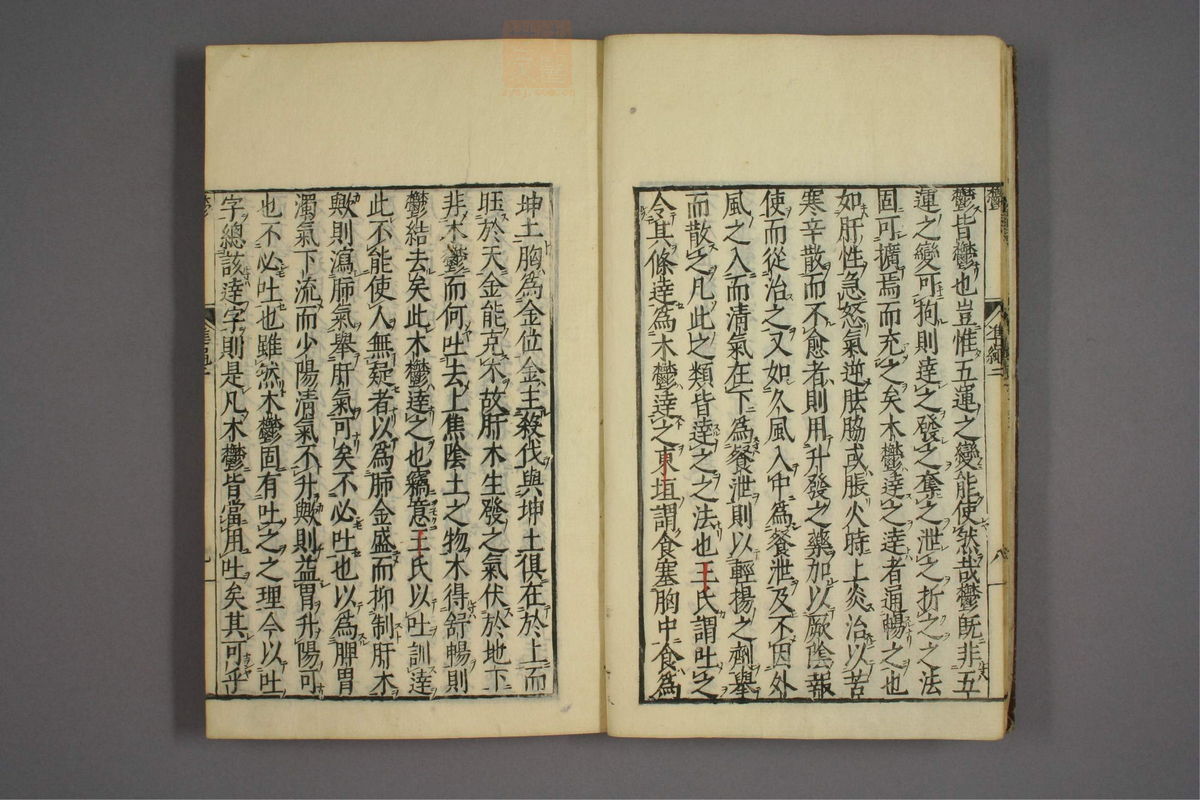 鬱皆鬱也豈惟五運之變能使然哉鬱既非五
運之變可拘則達之發之奪之泄之折之之法
固可擴焉而充之矣木鬱達之達者通暢之也
如肝性急怒氣逆胠脇或脹火時上炎治以苦
寒辛散而不愈者則用升發之藥加以厥陰報
使而從治之又如久風入中爲飧泄及不因外
風之入而清氣在下爲飧泄則以輕揚之劑舉
而散之凡此之類皆達之之法也王氏謂吐之
令其條達爲木鬱達之東垣謂食塞胸中食爲
坤土胸爲金位金主殺伐與坤土俱在於上而
旺於天金能克木故肝木生發之氣伏於地下
非木鬱而何吐去上焦陰土之物木得舒暢則
鬱結去矣此木鬱達之也竊意王氏以吐訓達
此不能使人無疑者以爲肺金盛而抑制肝木
歟則瀉肺氣舉肝氣可矣不必吐也以爲脾胃
濁氣下流而少陽清氣不升歟則益胃升陽可
也不必吐也雖然木鬱固有吐之之理今以吐
字總該達字則是凡木鬱皆當用吐矣其可乎